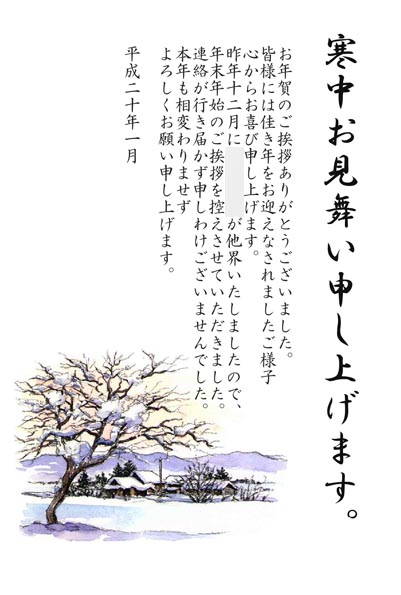 寒中お見舞い申し上げます。
お年賀のご挨拶ありがとうございました。
皆様には佳き年をお迎えなされましたご様子
心からお喜び申し上げます。
昨年十二月に が他界いたしましたので、
年末年始のご挨拶を控えさせていただきました。
連絡が行き届かず申しわけございませんでした。
本年も相変わりませず
よろしくお願い申し上げます。
平成二十年一月